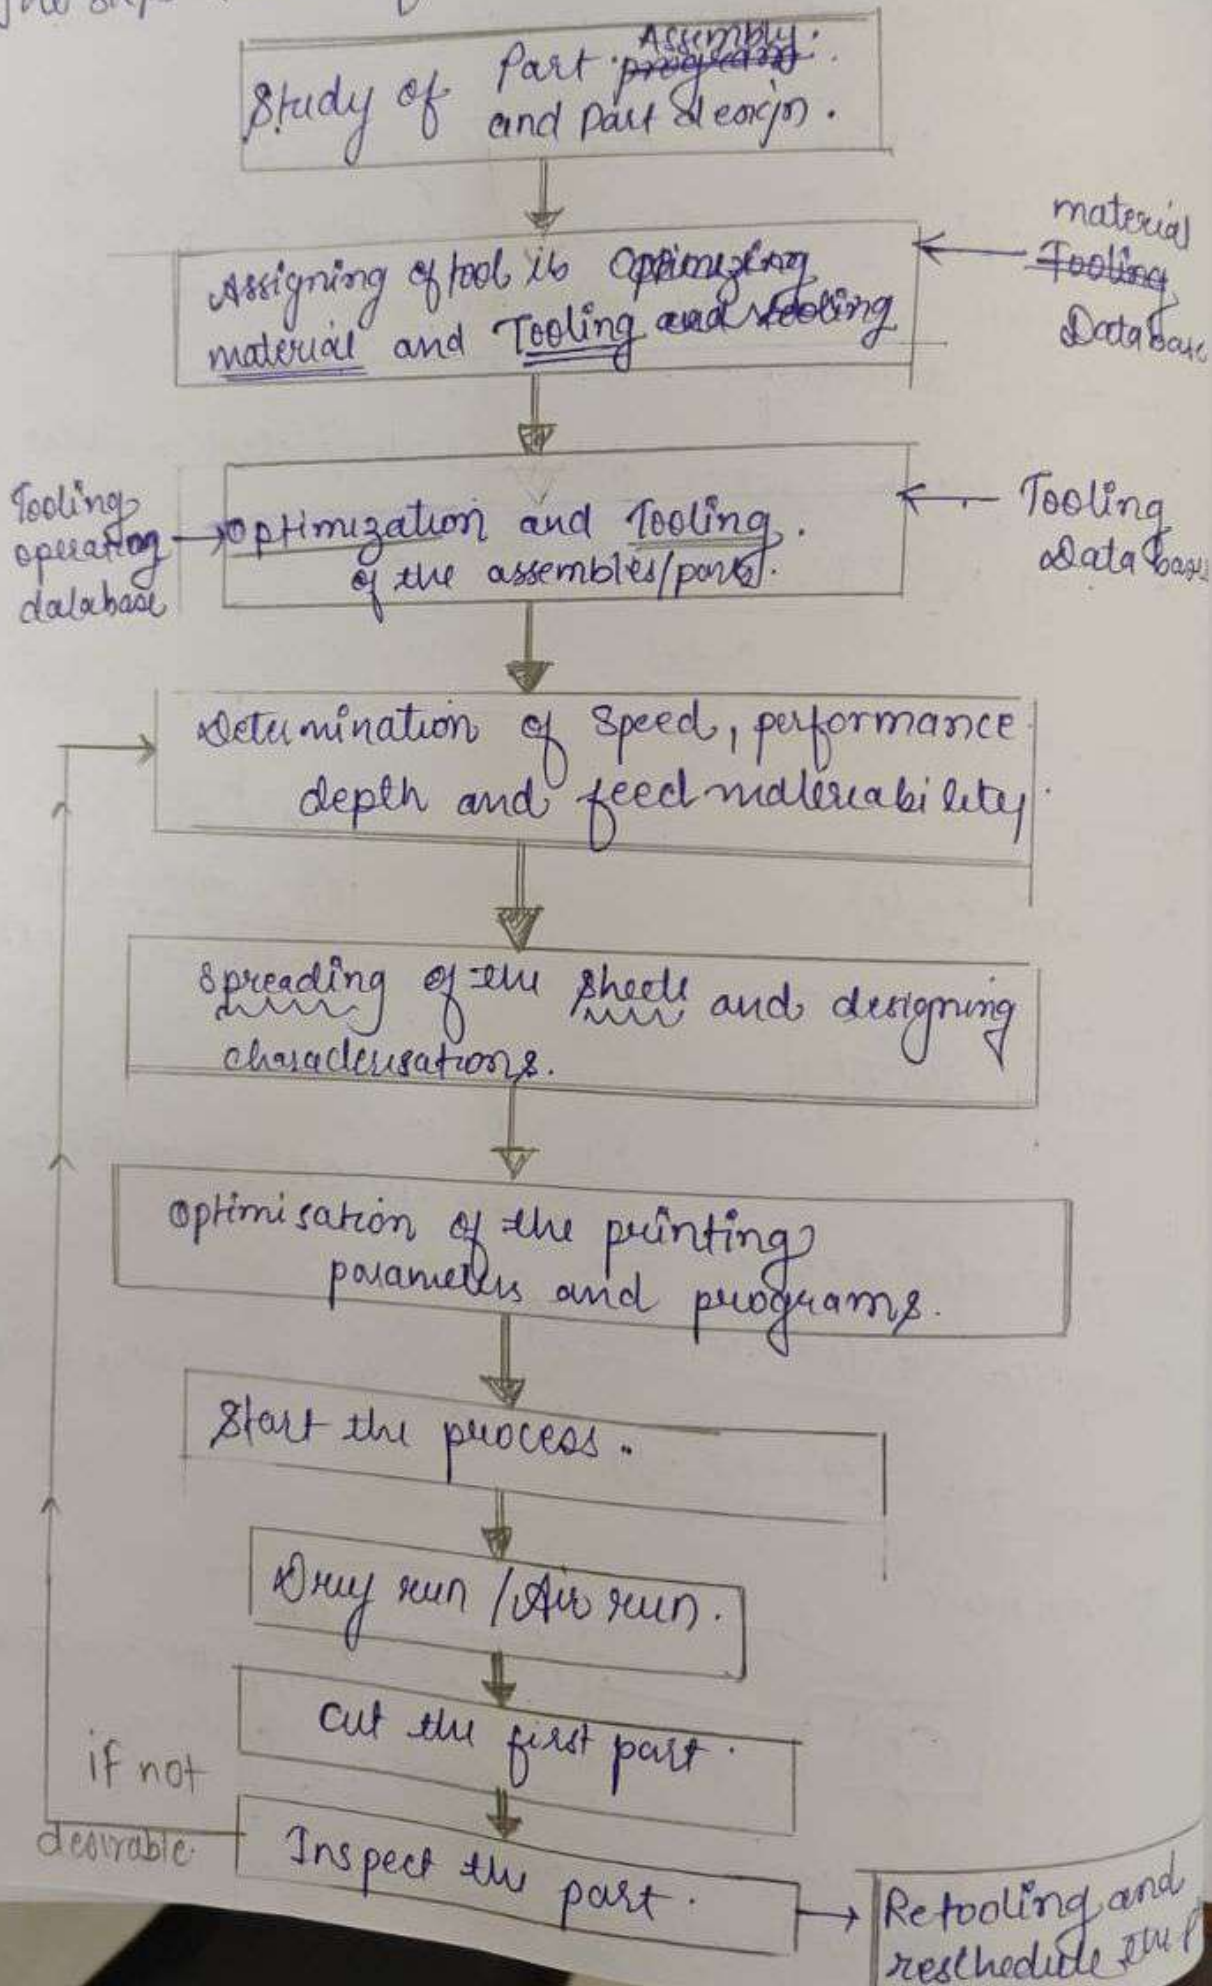 The steps
Assembly.
Study of Part program.
and part design.
material
Tooling
Database
Assigning of tool is Optimizing
material and Tooling and tooling
Tooling
operating
database
Tooling
Database
Optimization and Tooling.
of the assembles/parts.
Determination of Speed, performance
depth and feed materiability.
Spreading of the sheets and designing
characterisations.
Optimisation of the printing
parameters and programs.
Start the process.
Dry run / Air run.
Cut the first part.
if not
desirable
Inspect the part.
Retooling and
reschedule the